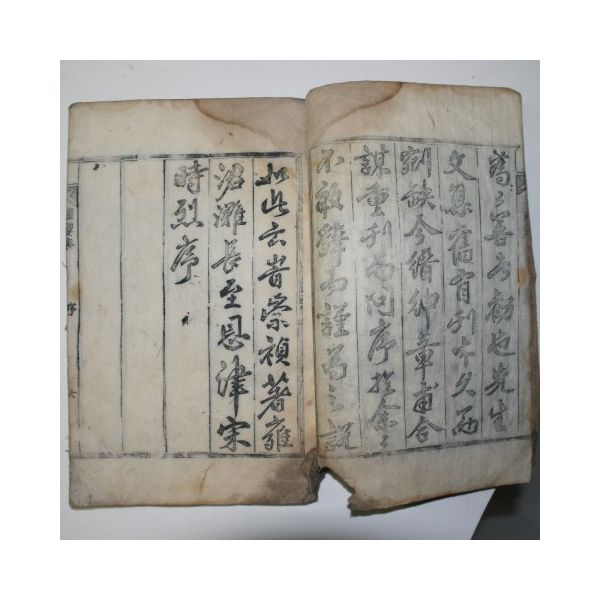 善者勸也先生
文集舊有刊本久而
剜缺今縉紳章甫合
謀重刊而問序於余〻
不敢辭而謹爲之說
如此云峕崇禎著雍
涒灘長至恩津宋
時烈序
序
六